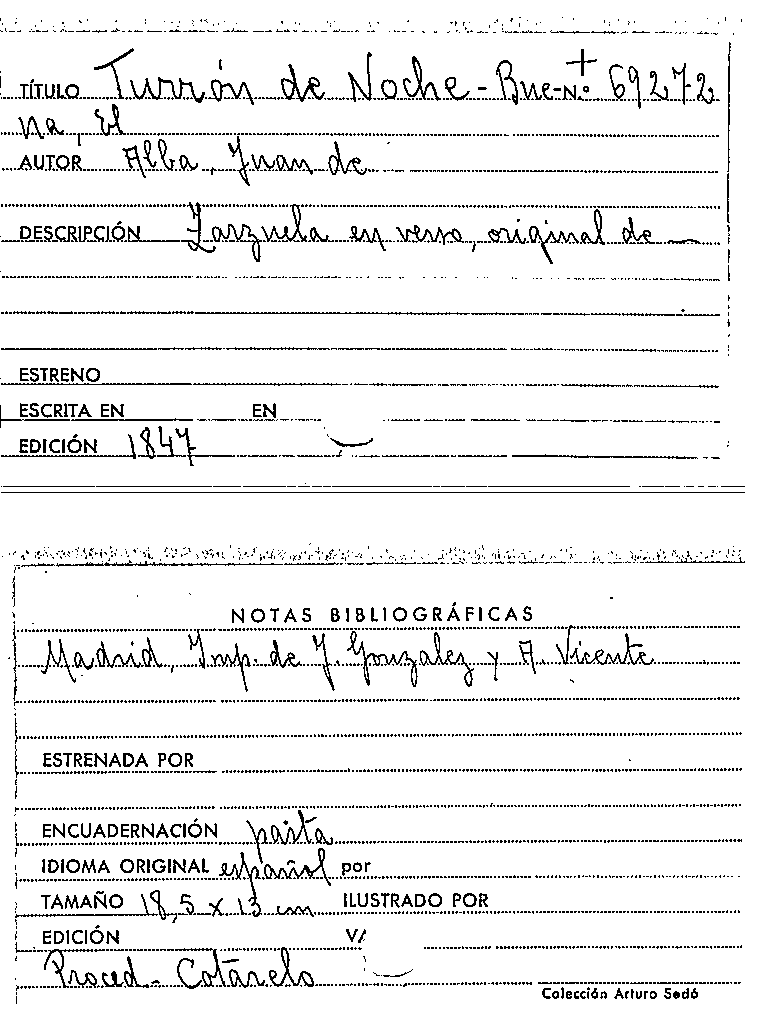 TÍTULO Turrón de Noche-Bue- N.º + 69272
na, El
AUTOR Alba, Juan de
DESCRIPCIÓN Zarzuela en verso, original de —
ESTRENO
ESCRITA EN EN
EDICIÓN 1847
NOTAS BIBLIOGRÁFICAS
Madrid, Imp. de J. Gonzalez y A. Vicente
ESTRENADA POR
ENCUADERNACIÓN pasta
IDIOMA ORIGINAL español por
TAMAÑO 18,5 x 13 cm ILUSTRADO POR
EDICIÓN
Proced- Cotarelo
Colección Arturo Sedó